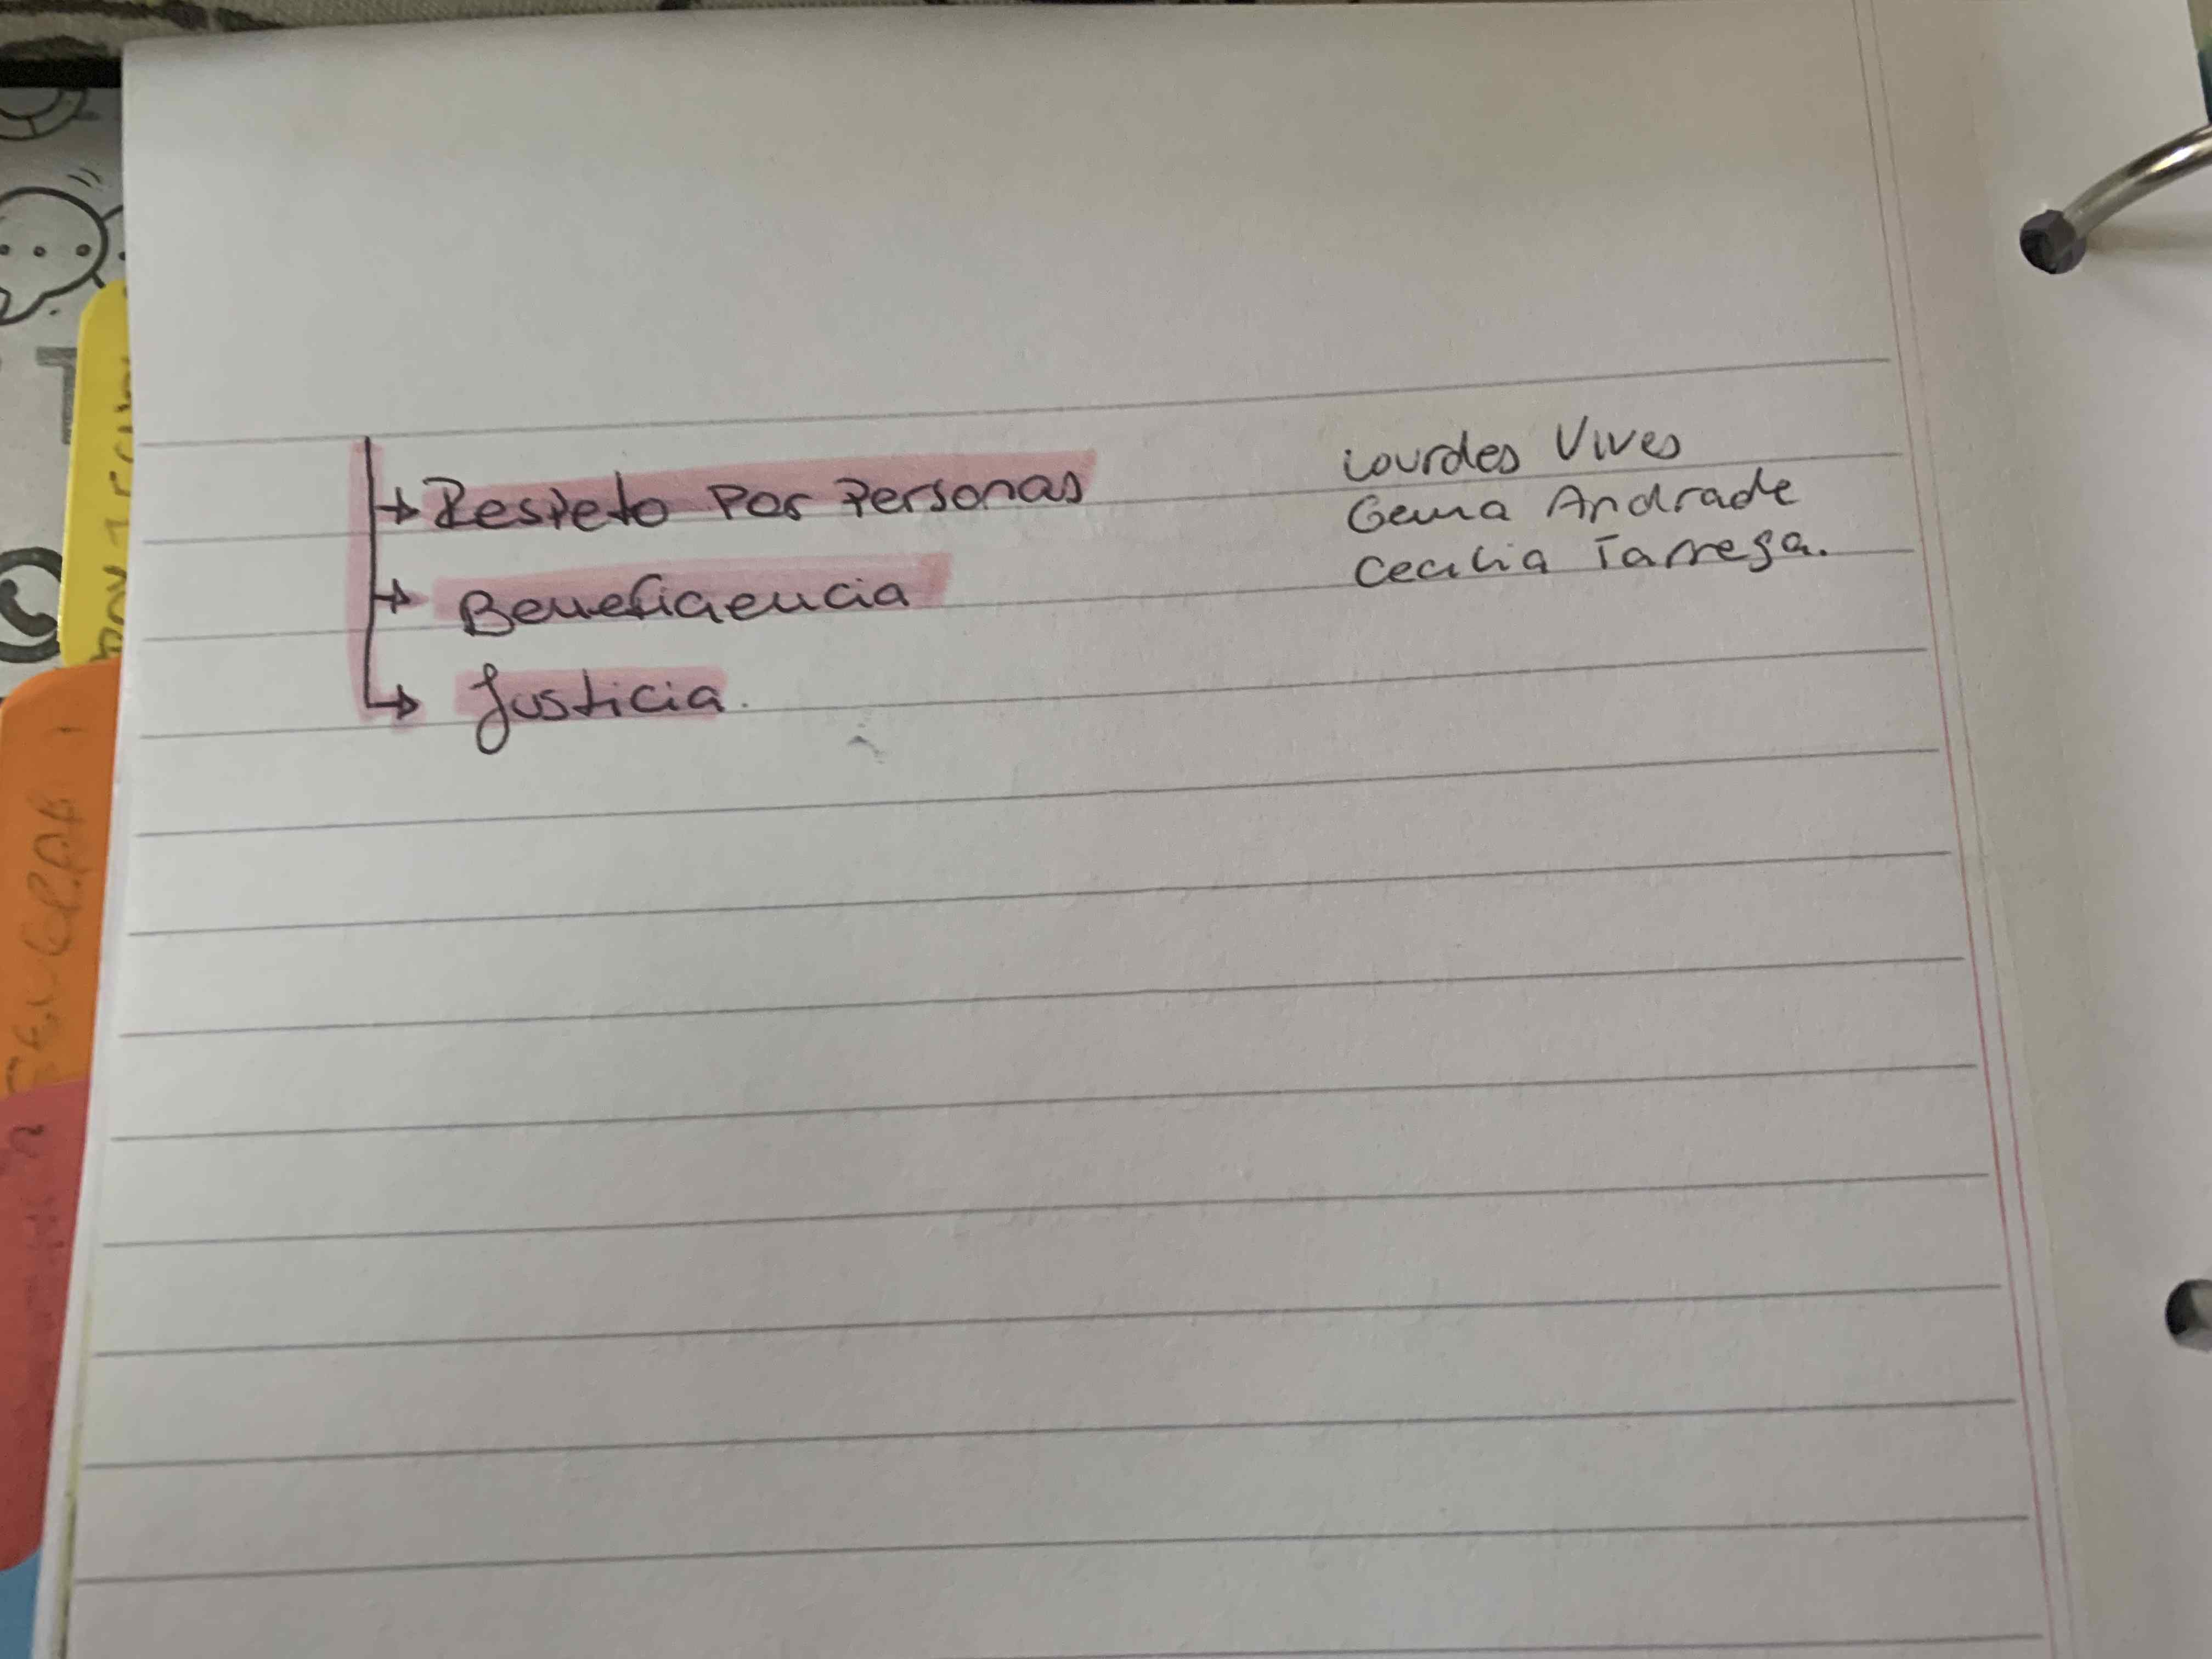 → Respeto Por Personas
→ Beneficiencia
→ Justicia.
Lourdes Vives
Gema Andrade
Cecilia Tarrega.